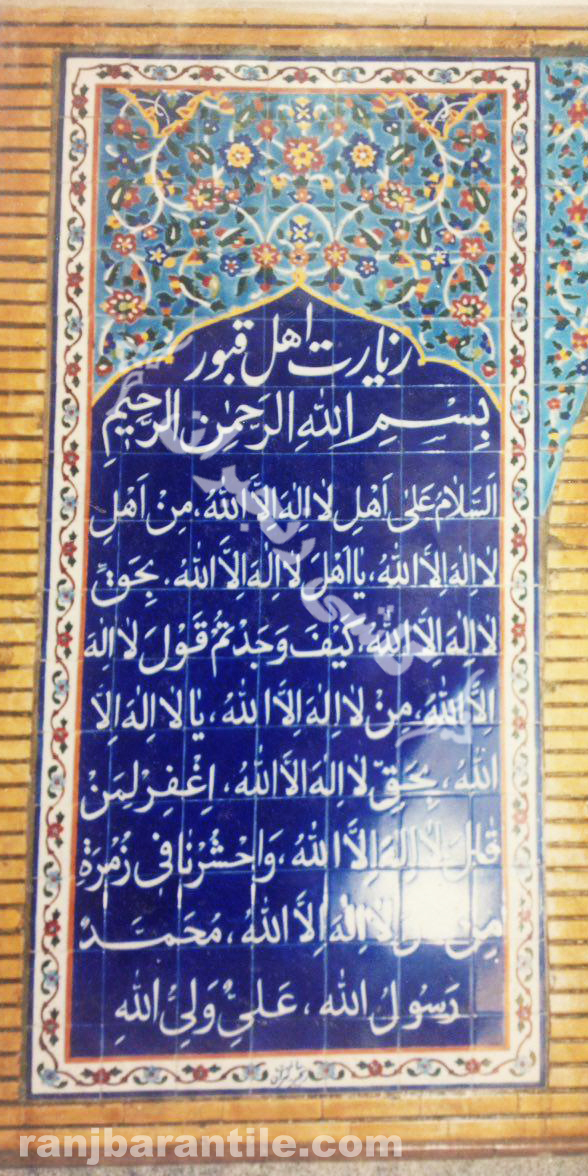 زیارت اهل قبور
بِسْمِ اللهِ الرَحمٰنِ الرَحیمِ
اَلسَّلامُ عَلیٰ اَهْلِ لا اِلٰهَ اِلَّا اللهُ، مِنْ اَهْلِ
لا اِلٰهَ اِلَّا اللهُ، یا اَهْلَ لا اِلٰهَ اِلَّا اللهُ، بِحَقِّ
لا اِلٰهَ اِلَّا اللهُ، کَیْفَ وَجَدْتُمْ قَوْلَ لا اِلٰهَ
اِلَّا اللهُ، مِنْ لا اِلٰهَ اِلَّا اللهُ، یا لا اِلٰهَ اِلَّا
اللهُ، بِحَقِّ لا اِلٰهَ اِلَّا اللهُ، اِغْفِرْ لِمَنْ
قالَ لا اِلٰهَ اِلَّا اللهُ، وَاحْشُرْنا فی زُمْرَةِ
مِنْ قالَ لا اِلٰهَ اِلَّا اللهُ، مُحَمَّدٌ
رَسُولُ الله، عَلیٌّ وَلیُّ اللهِ
ranjbarantile.com